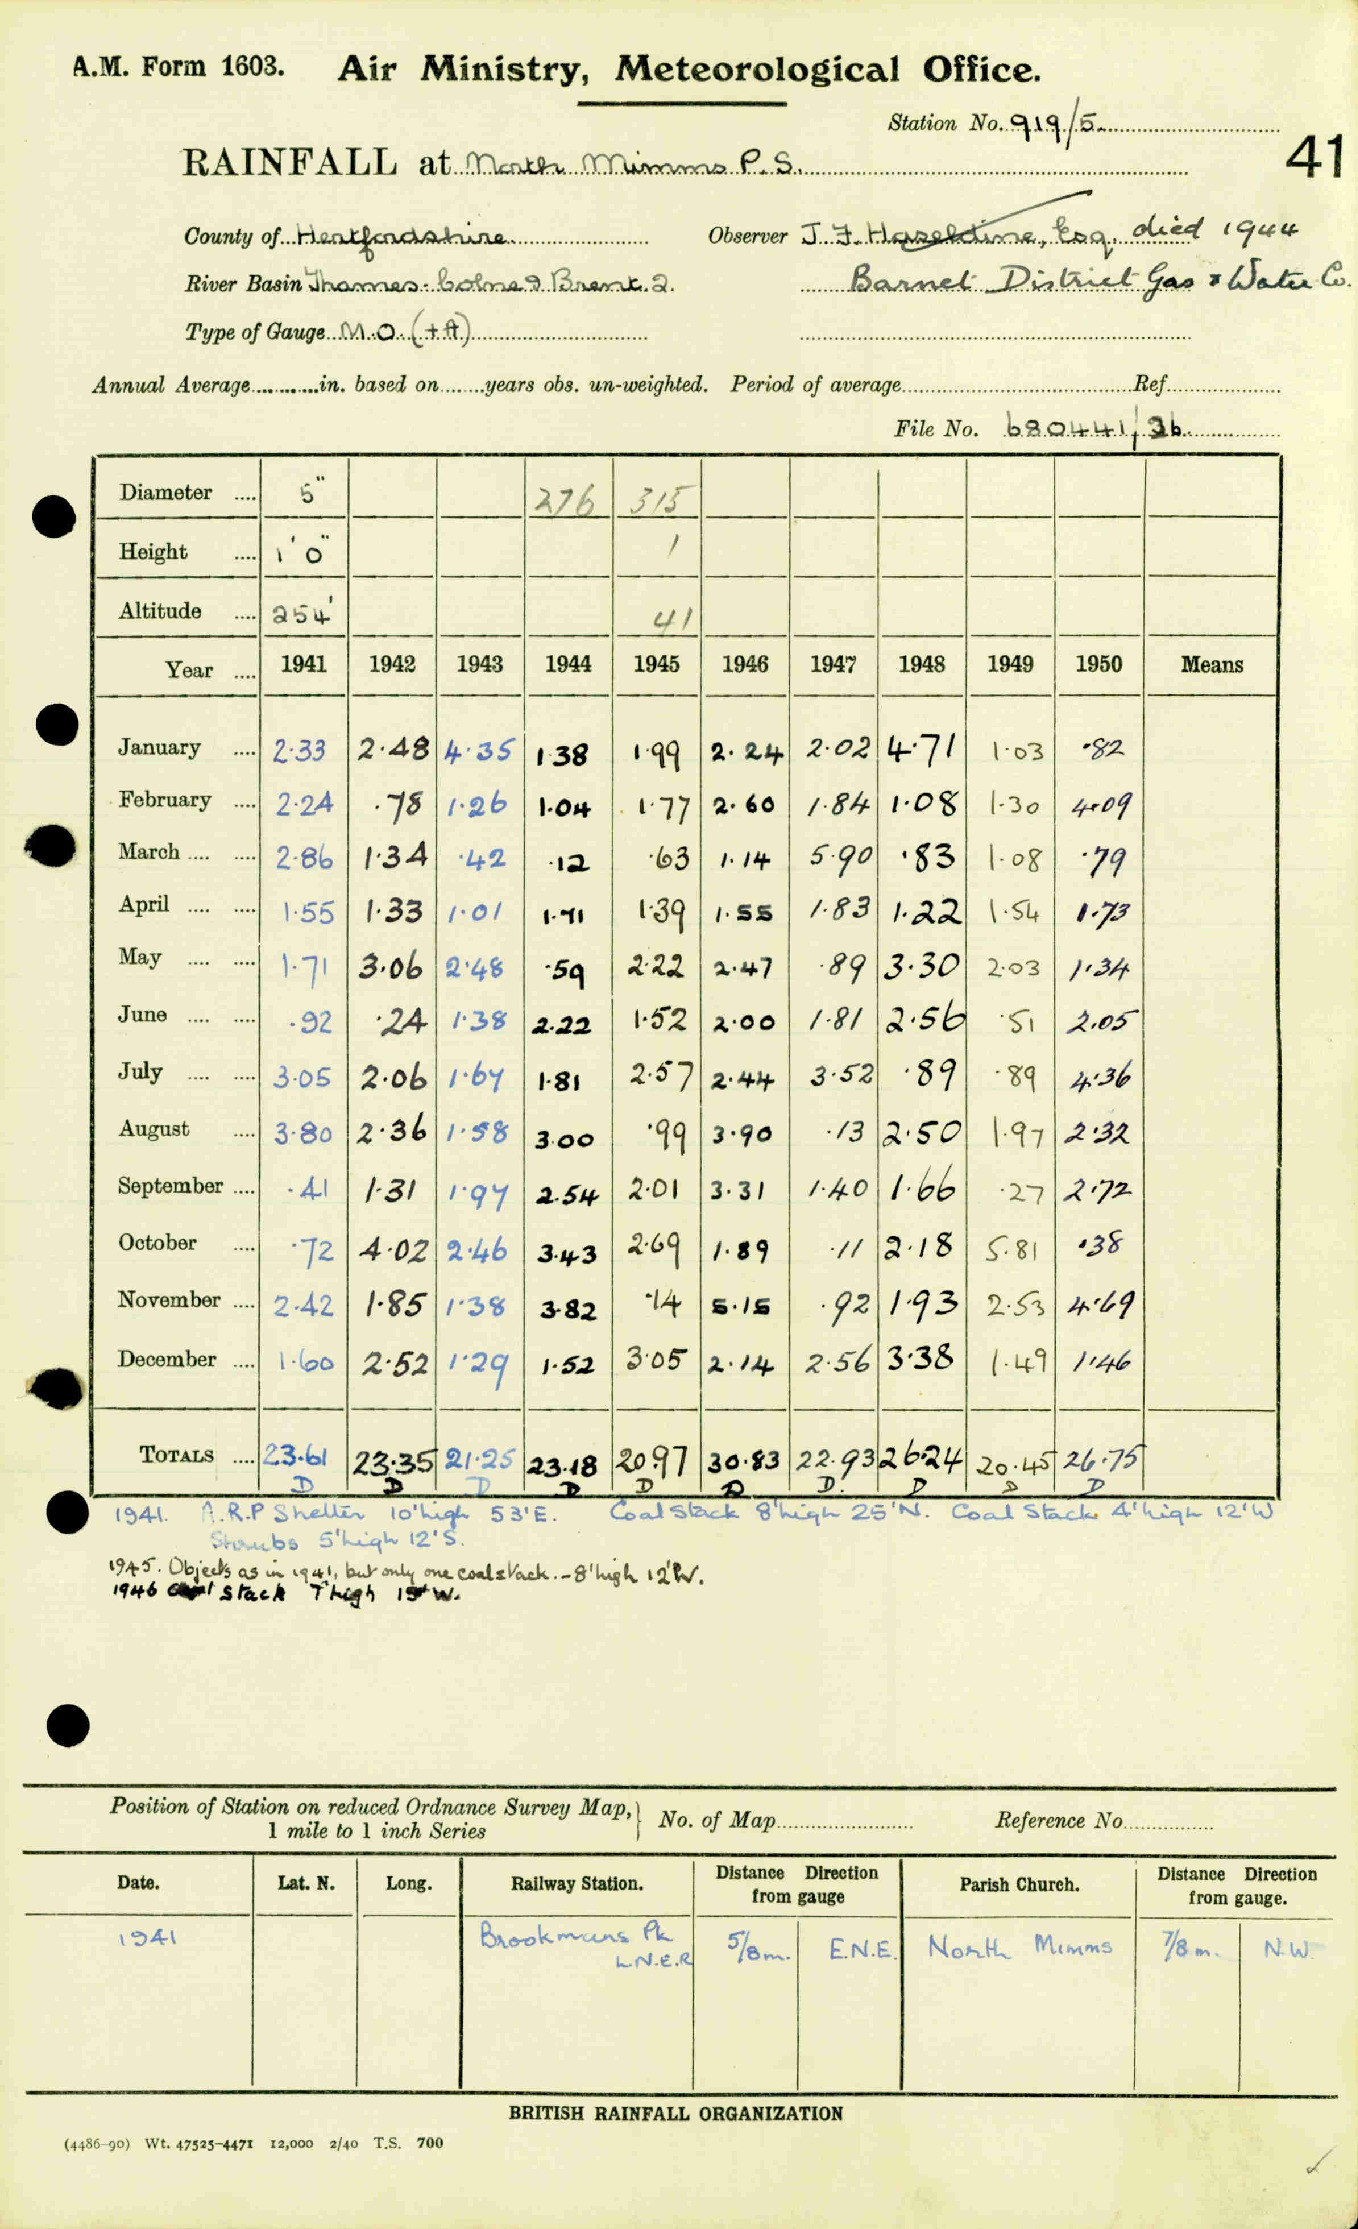 A.M. Form 1603. Air Ministry, Meteorological Office.
Station No. 919/5
41
RAINFALL at North Mimms P.S.
County of Hertfordshire Observer J. F. Hazeldine, Esq. died 1944
River Basin Thames. Colne & Brent. 2. Barnet District Gas & Water Co.
Type of Gauge M.O. (+ft)
Annual Average in. based on years obs. un-weighted. Period of average Ref.
File No. 680441/36
Diameter .... 5" 276 315
Height .... 1' 0" 1
Altitude .... 254' 41
Year .... 1941 1942 1943 1944 1945 1946 1947 1948 1949 1950 Means
January .... 2.33 2.48 4.35 1.38 1.99 2.24 2.02 4.71 1.03 .82
February .... 2.24 .78 1.26 1.04 1.77 2.60 1.84 1.08 1.30 4.09
March .... .... 2.86 1.34 .42 .12 .63 1.14 5.90 .83 1.08 .79
April .... .... 1.55 1.33 1.01 1.71 1.39 1.55 1.83 1.22 1.54 1.73
May .... .... 1.71 3.06 2.48 .59 2.22 2.47 .89 3.30 2.03 1.34
June .... .... .92 .24 1.38 2.22 1.52 2.00 1.81 2.56 .51 2.05
July .... .... 3.05 2.06 1.67 1.81 2.57 2.44 3.52 .89 .89 4.36
August .... 3.80 2.36 1.58 3.00 .99 3.90 .13 2.50 1.97 2.32
September .... .41 1.31 1.97 2.54 2.01 3.31 1.40 1.66 .27 2.72
October .... .72 4.02 2.46 3.43 2.69 1.89 .11 2.18 5.81 .38
November .... 2.42 1.85 1.38 3.82 .14 5.15 .92 1.93 2.53 4.69
December .... 1.60 2.52 1.29 1.52 3.05 2.14 2.56 3.38 1.49 1.46
TOTALS .... 23.61 23.35 21.25 23.18 20.97 30.83 22.93 26.24 20.45 26.75
D D D D D D D. D D D
1941. A.R.P Shelter 10'high 53'E. Coal Stack 8'high 25'N. Coal Stack 4'high 12'W
Shrubs 5'high 12'S.
1945. Objects as in 1941, but only one coal stack. - 8'high 12'W.
1946 Coal stack 7'high W.
Position of Station on reduced Ordnance Survey Map,} No. of Map Reference No.
1 mile to 1 inch Series
Date. Lat. N. Long. Railway Station. Distance Direction from gauge Parish Church. Distance Direction from gauge.
1941 Brookmans Pk L.N.E.R 5/8m. E.N.E. North Mimms 7/8m. N.W.
BRITISH RAINFALL ORGANIZATION
(4486-90) Wt. 47525-4471 12,000 2/40 T.S. 700